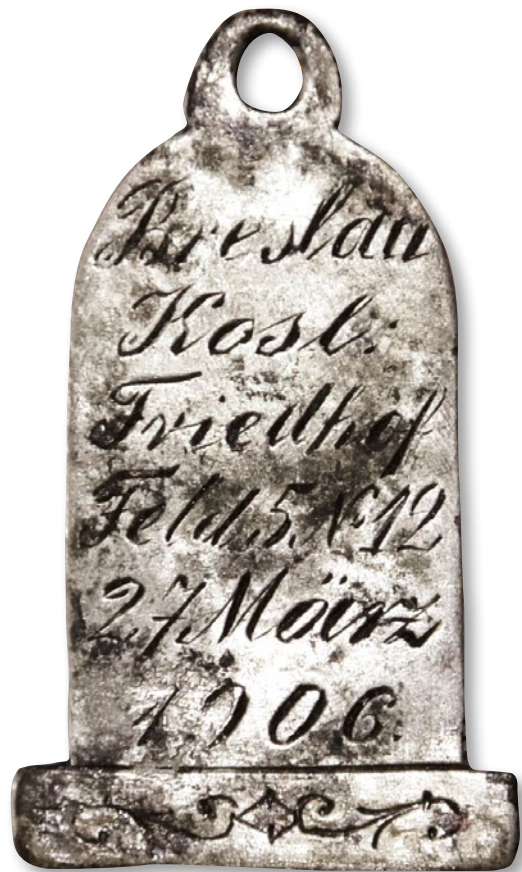 Breslau
Kosl:
Friedhof
Feld.5.No12
27 März
1906.